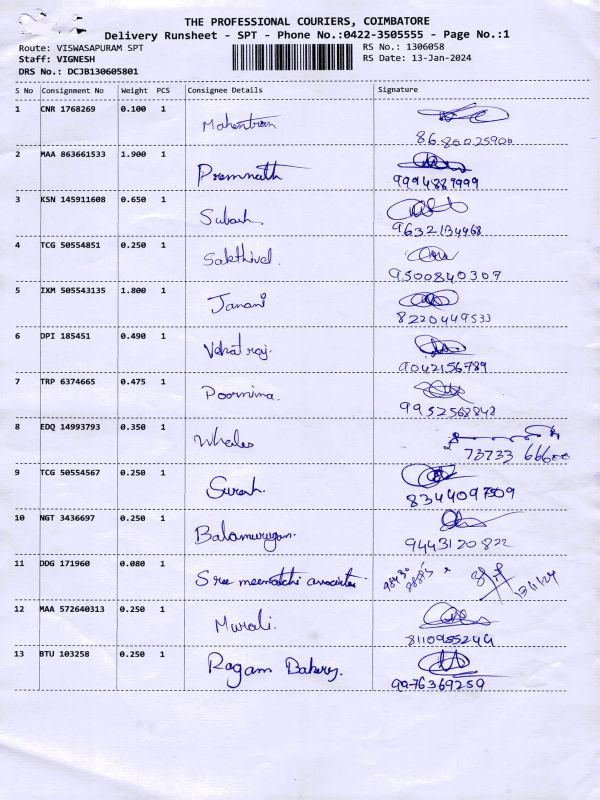 THE PROFESSIONAL COURIERS, COIMBATORE
Delivery Runsheet - SPT - Phone No.:0422-3505555 - Page No.:1
Route: VISWASAPURAM SPT RS No.: 1306058
Staff: VIGNESH RS Date: 13-Jan-2024
DRS No.: DCJB130605801
S No Consignment No Weight PCS Consignee Details Signature
1 CNR 1768269 0.100 1 Mahentran
8680025906
2 MAA 863661533 1.900 1 Premnath
9994889999
3 KSN 145911608 0.650 1 Subash
9632134468
4 TCG 50554851 0.250 1 Sakthivel.
9500840309
5 IXM 505543135 1.800 1 Janani
8220449533
6 DPI 185451 0.490 1 Vekatraj.
9042156789
7 TRP 6374665 0.475 1 Poornima.
9952568848
8 EDQ 14993793 0.350 1
73733 66600
9 TCG 50554567 0.250 1 Suresh.
8344097509
10 NGT 3436697 0.250 1 Balamurugan.
9443120822
11 DDG 171960 0.080 1 Sree meenatchi associates.
13/1/24
12 MAA 572640313 0.250 1 Murali.
8110955244
13 BTU 103258 0.250 1 Ragam Bakery.
9976369259